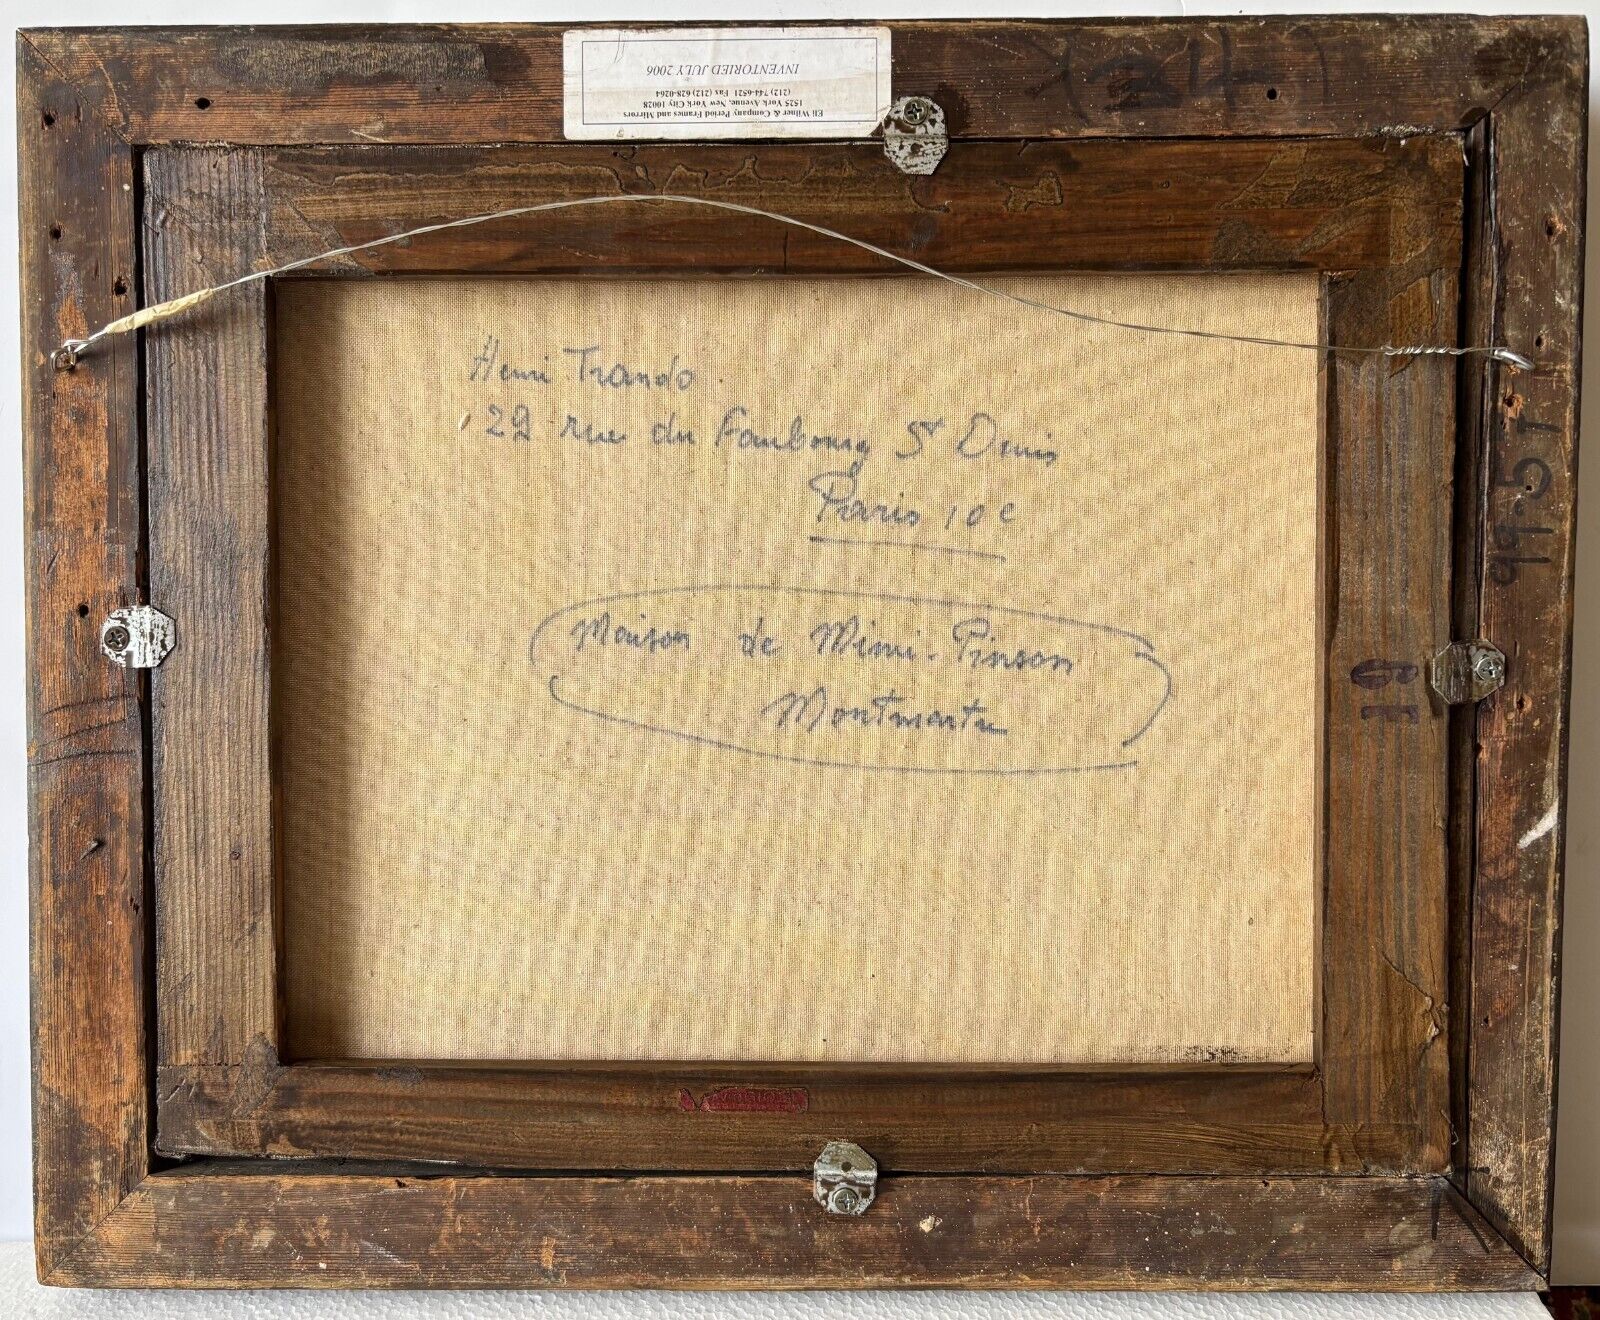 Eli Wilner & Company Period Frames and Mirrors
1525 York Avenue, New York City 10028
(212) 744-6521 Fax (212) 628-0264
INVENTORIED JULY 2006
Henri Trando
22 rue du Faubourg St Denis
Paris 10e
Maison de Mimi-Pinson
Montmartre
19